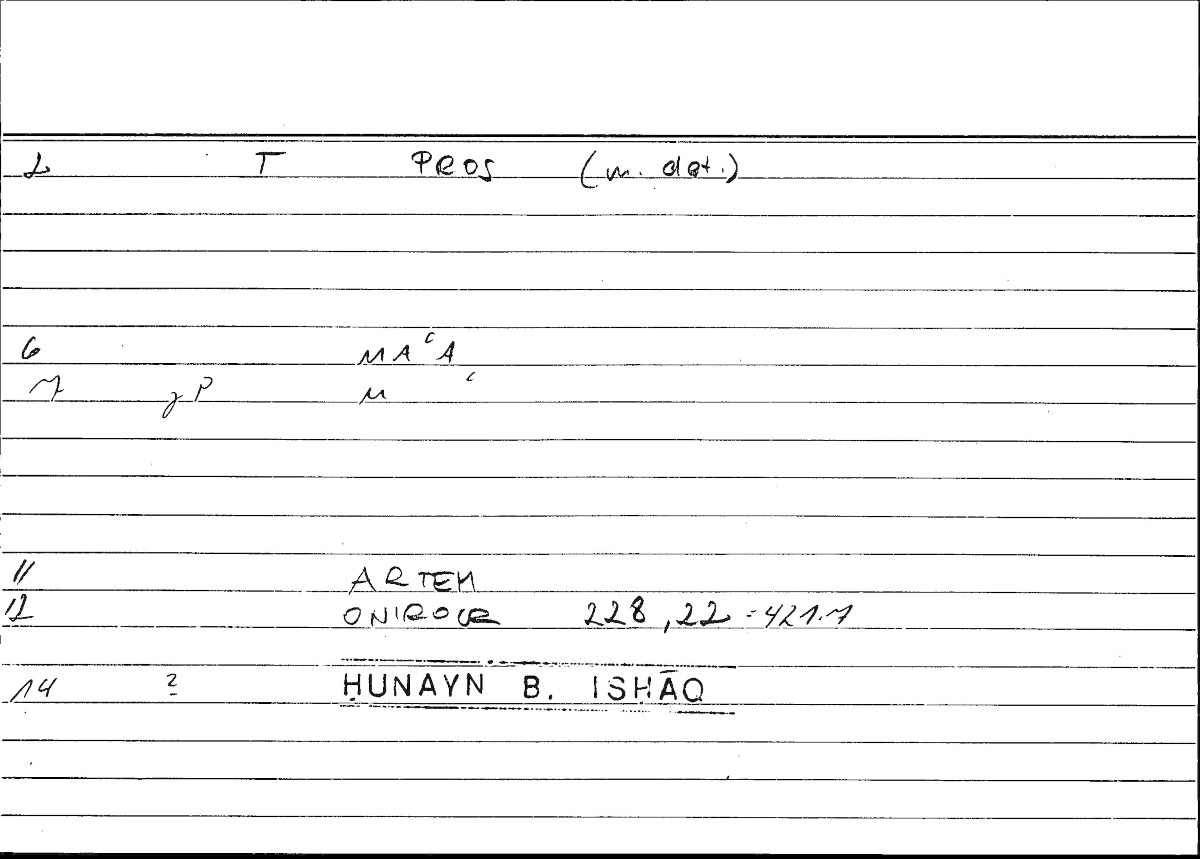 2 T PROS (m. dat.)
6 MAʿA
7 gP M ʿ
11 ARTEM
12 ONIROCR 228,22 = 421.7
14 2 ḤUNAYN B. ISḤĀQ